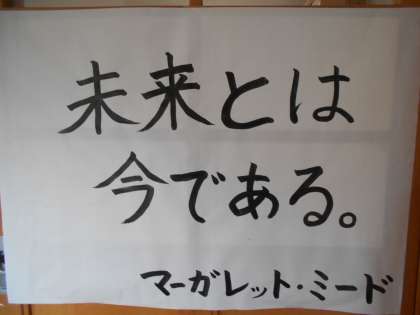 未来とは
今である。
マーガレット・ミード